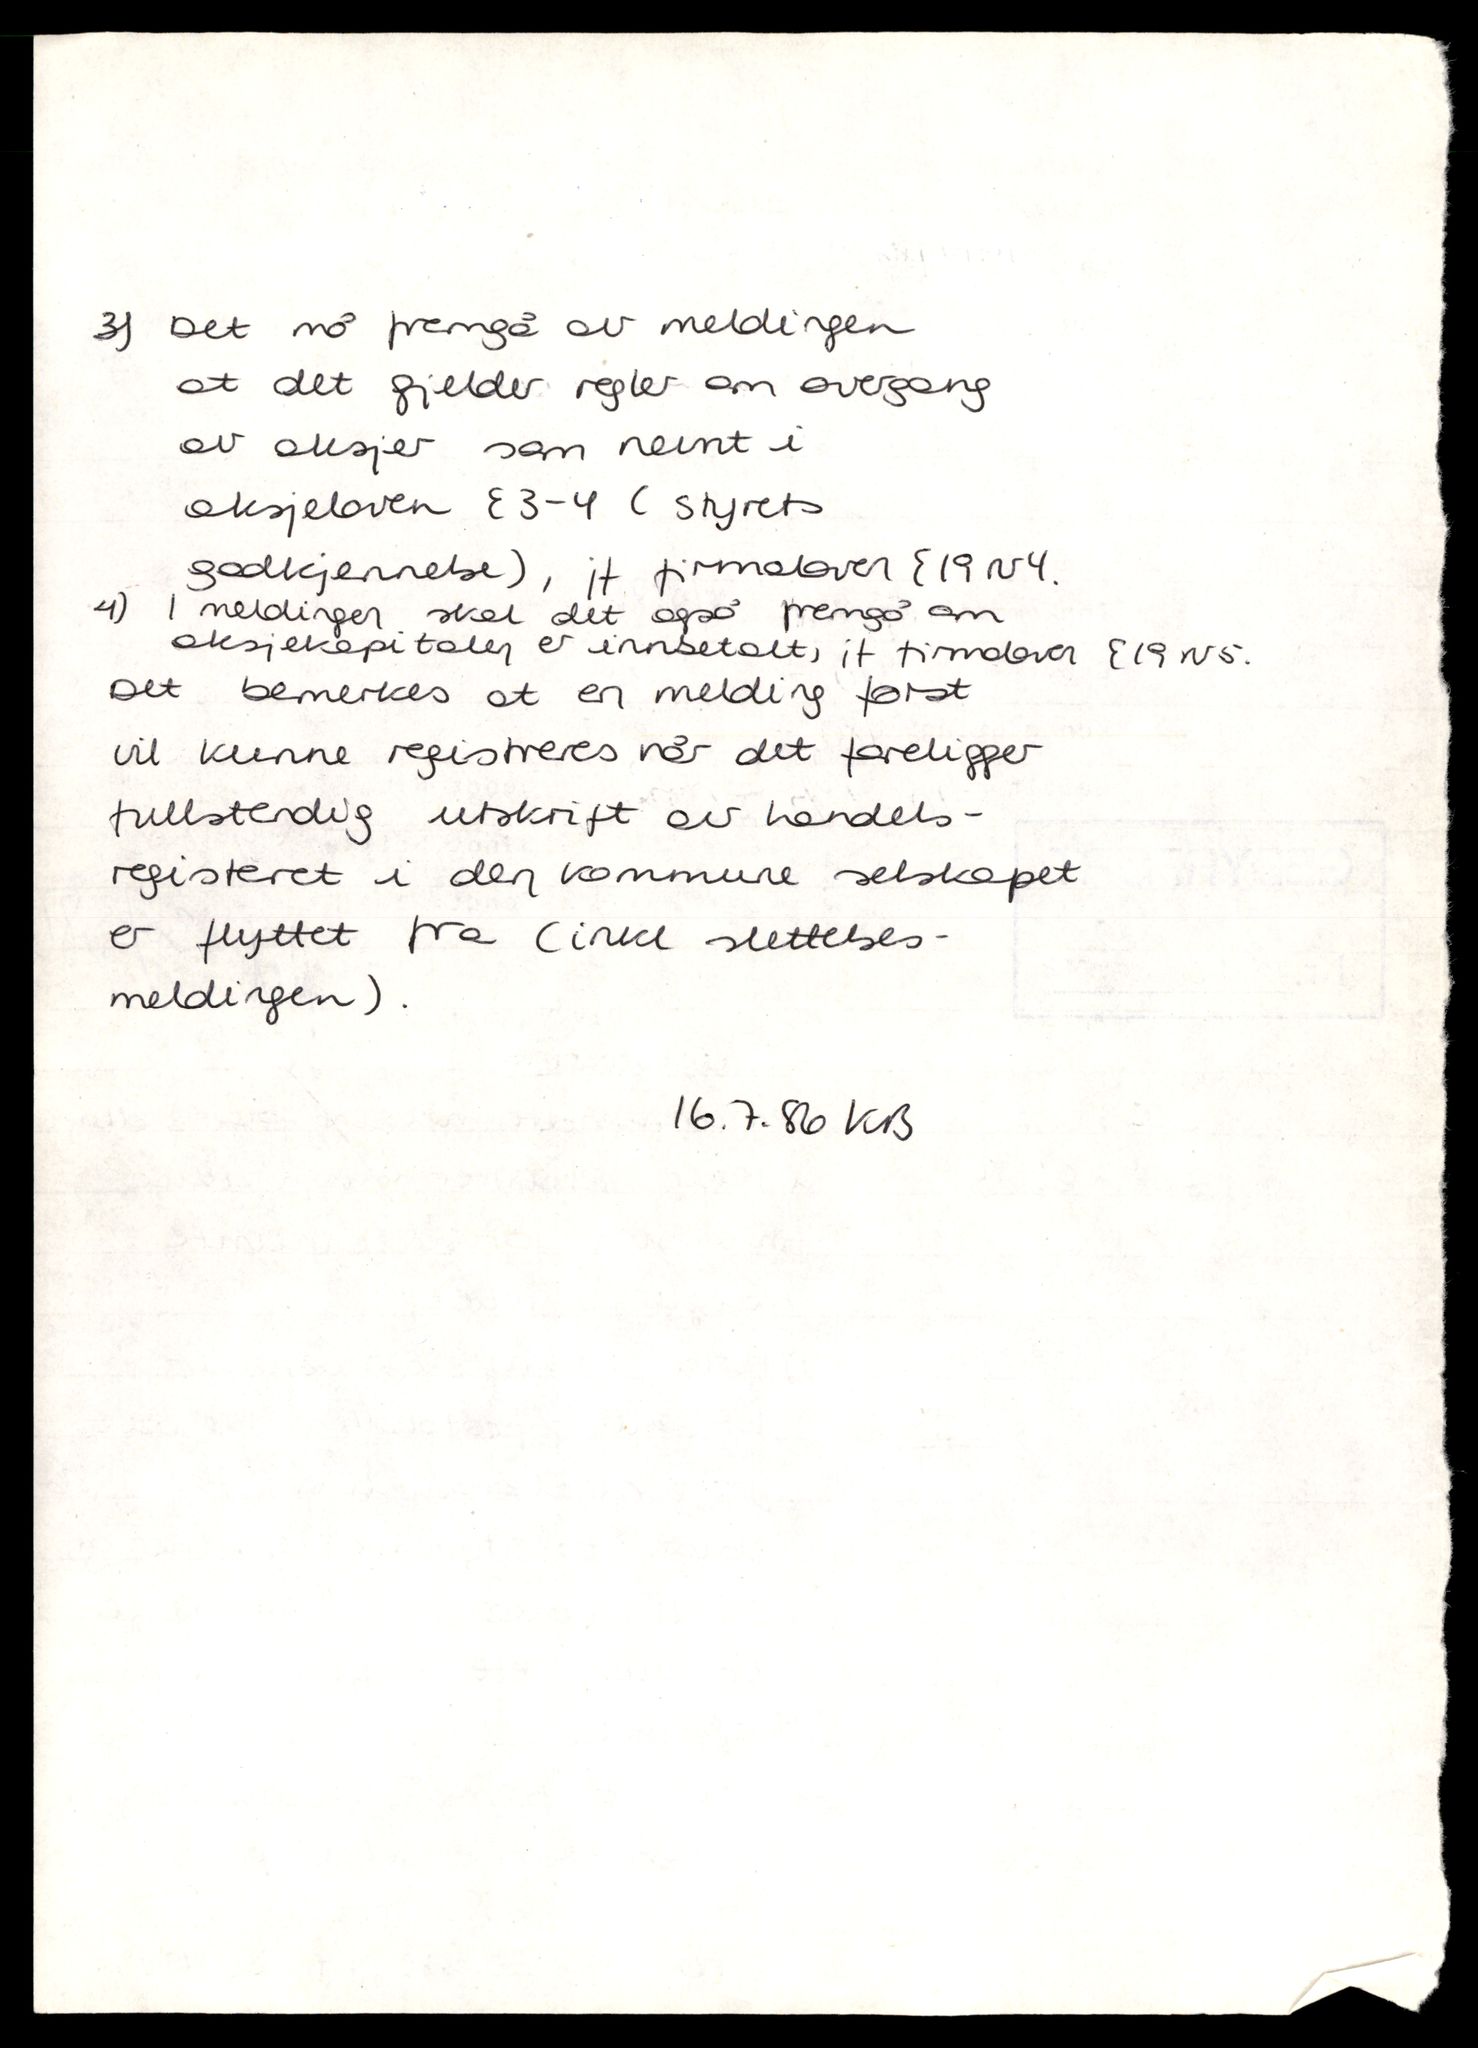 3) Det må fremgå av meldingen
at det gjelder regler om overgang
av aksjer som nevnt i
aksjeloven § 3-4 (styrets
godkjennelse), jf firmaloven § 19 nr 4.
4) I meldingen skal det også fremgå om
aksjekapitalen er innbetalt, jf firmaloven § 19 nr 5.
Det bemerkes at en melding først
vil kunne registreres når det foreligger
fullstendig utskrift av handels-
registeret i den kommune selskapet
er flyttet fra (inkl slettelses-
meldingen).
16.7.86 KB